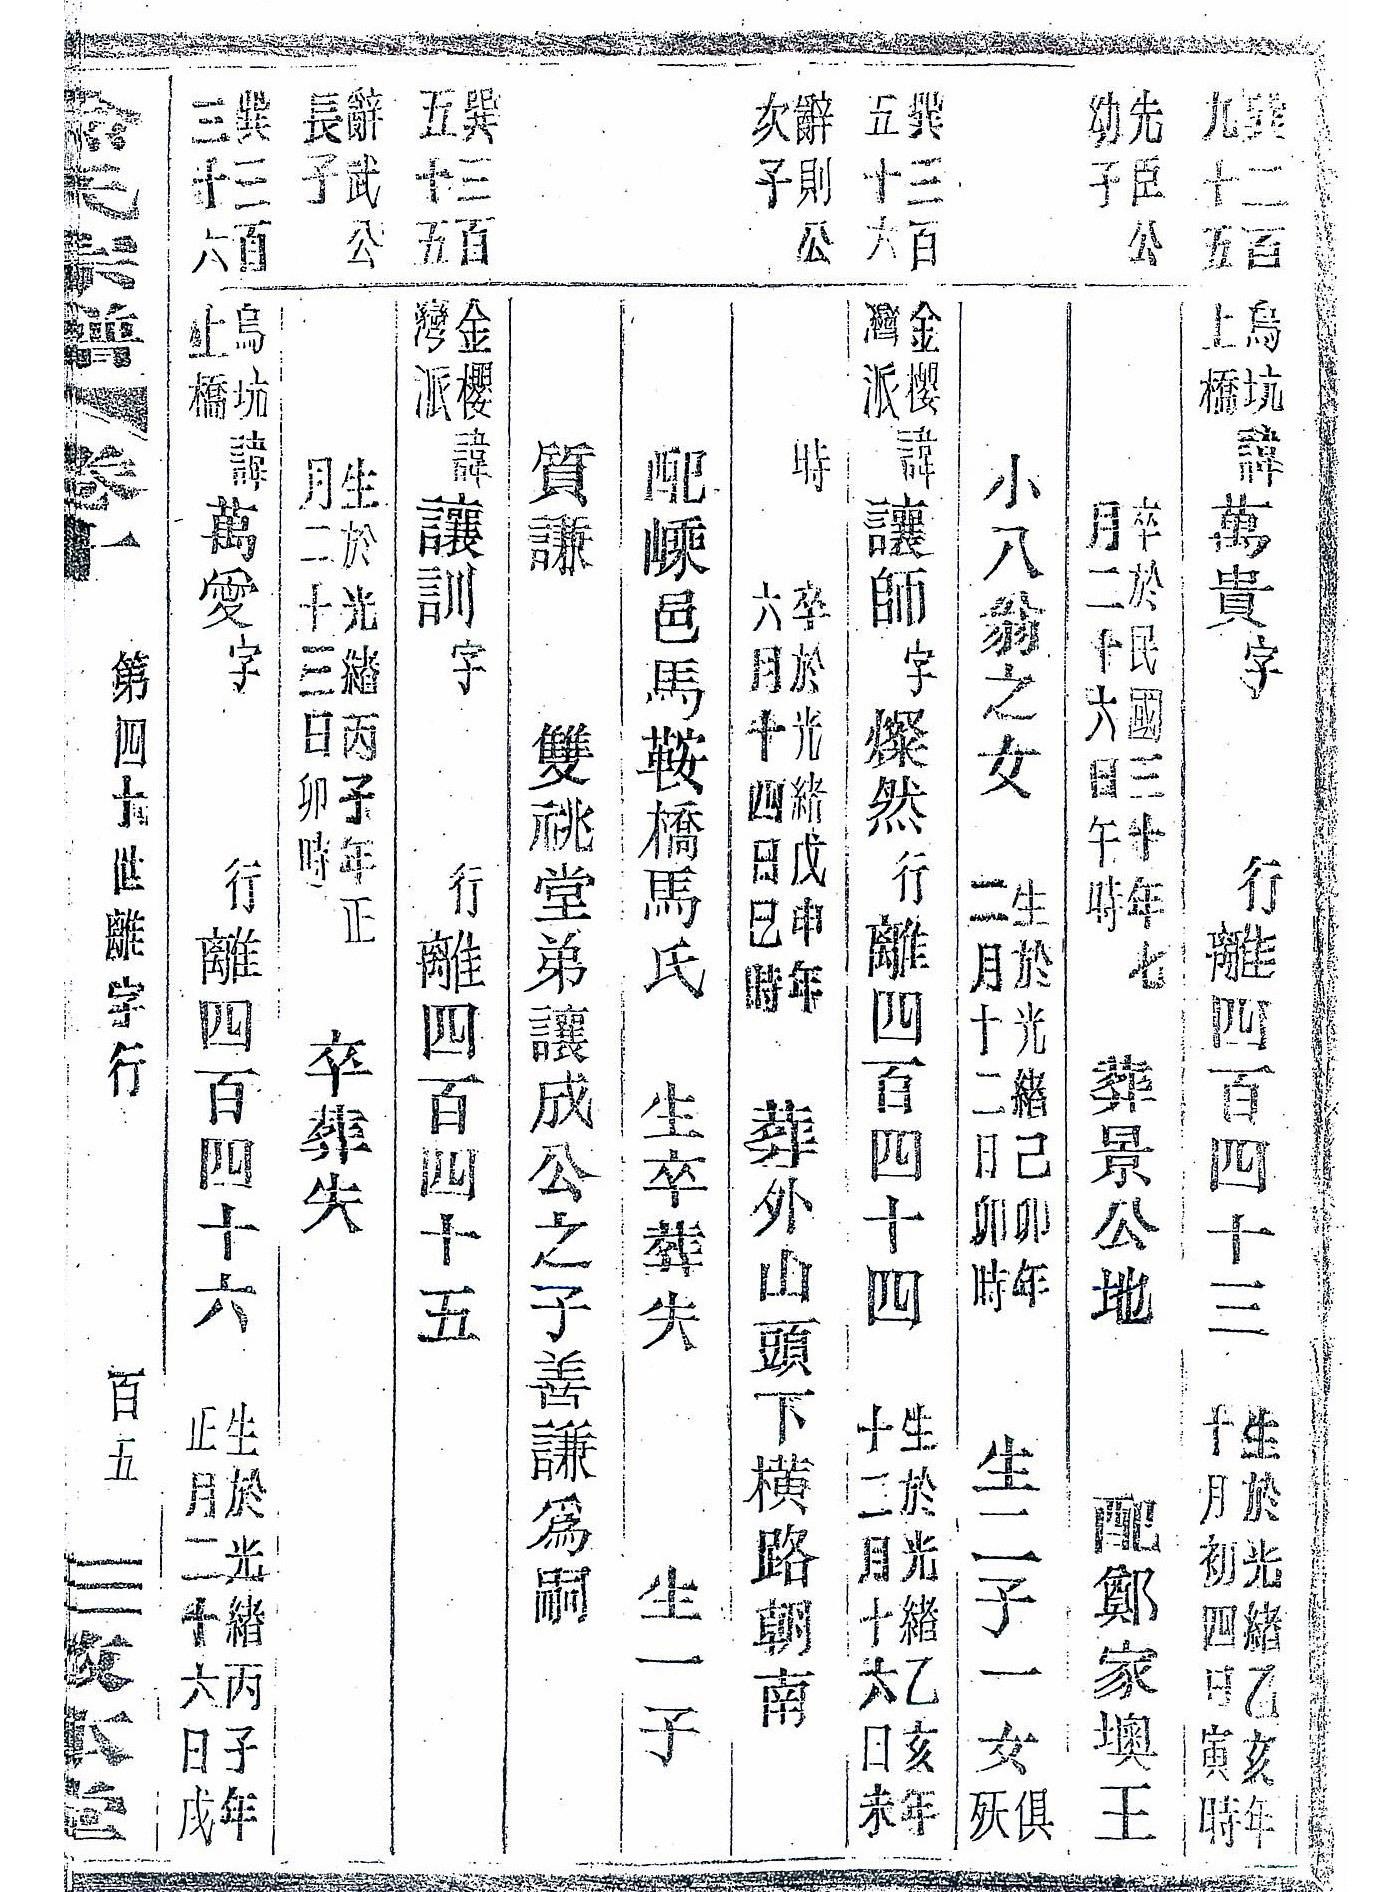 巽二百九十五
烏坑上橋諱萬貴字 行離四百四十三 生於光緒乙亥年十月初四日寅時
先臣公幼子
卒於民國三十年七月二十六日午時 葬景公地 配鄭家墺王
小八翁之女 生於光緒己卯年二月十二日卯時 生二子一女俱殀
巽三百五十六
金櫻灣派諱讓師字燦然行離四百四十四 生於光緒乙亥年十二月十六日未
辭則公次子
時 卒於光緒戊申年六月十四日巳時 葬外山頭下橫路朝南
配嵊邑馬鞍橋馬氏 生卒葬失 生一子
質謙 雙祧堂弟讓成公之子善謙爲嗣
巽三百五十五
金櫻灣派諱讓訓字 行離四百四十五
辭武公長子
生於光緒丙子年正月二十三日卯時 卒葬失
巽三百三十六
烏坑上橋諱萬愛字 行離四百四十六 生於光緒丙子年正月二十六日戌
宗譜 卷一 第四十世離字行 百五 三 堂